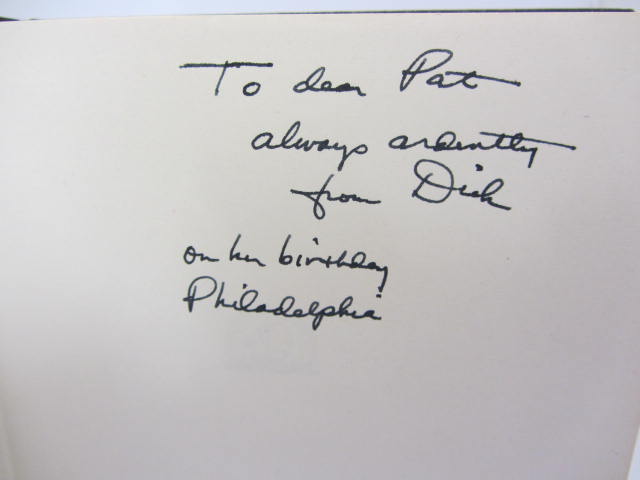 To dear Pat
always ardently
from Dick
on her birthday
Philadelphia